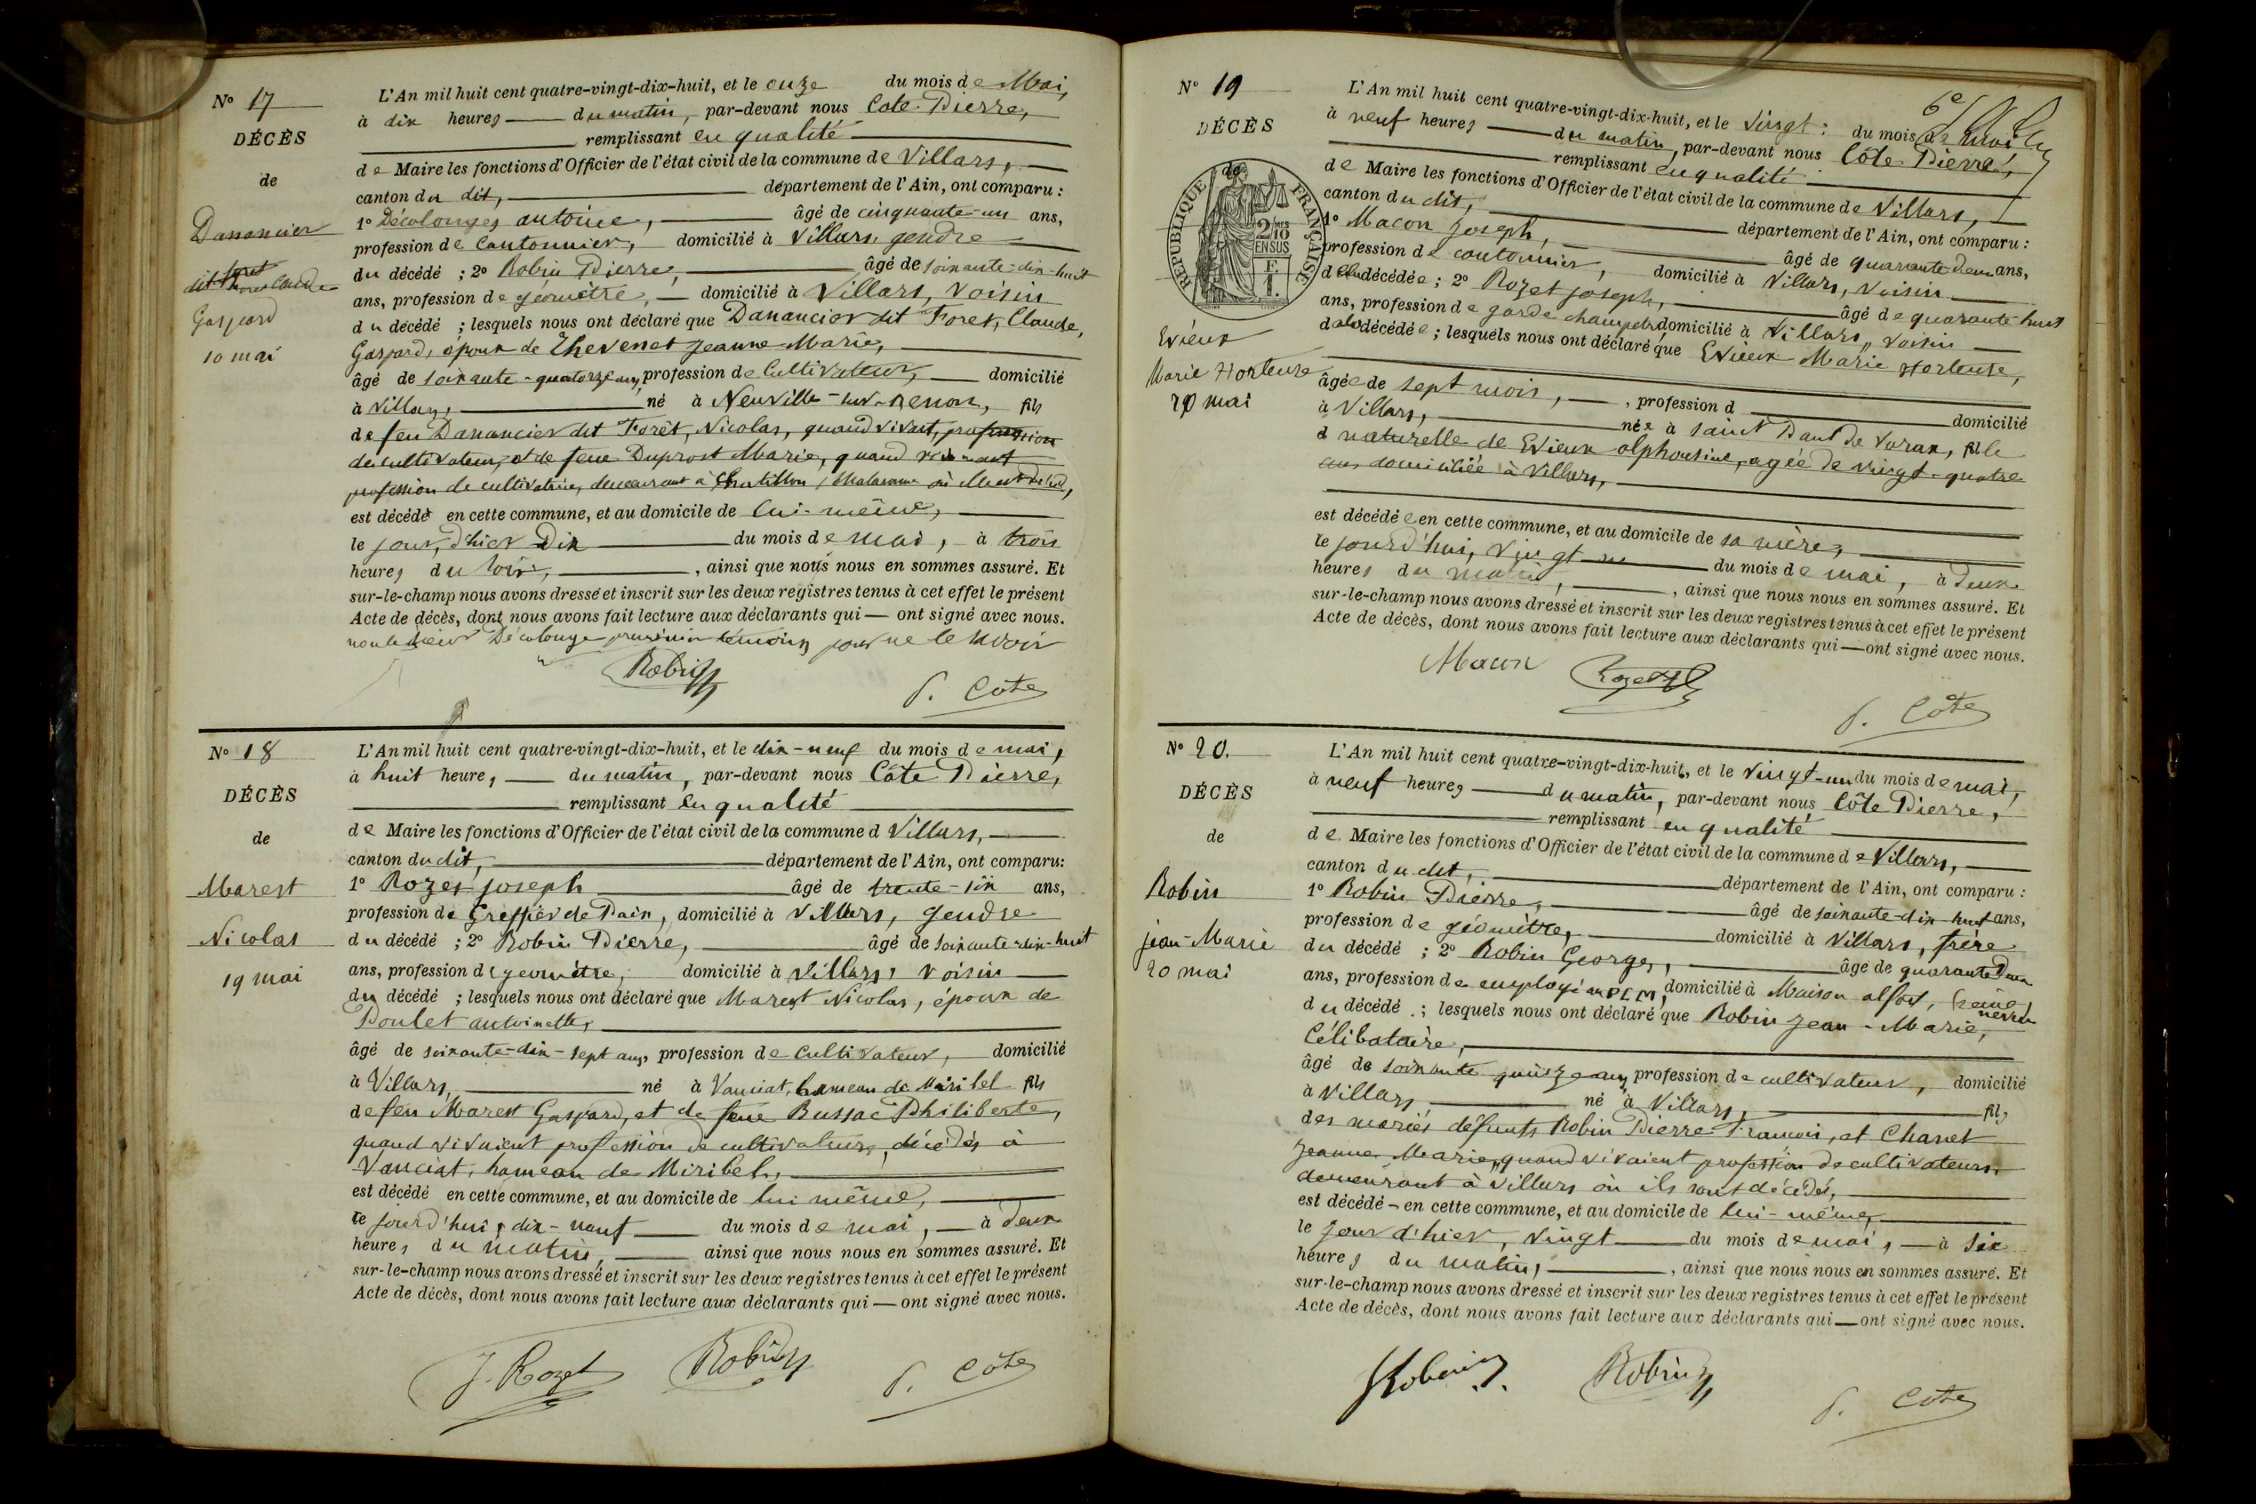 N° 17
DÉCÈS
de
Danancier
dit Foret Claude
Gaspard
10 mai
L'An mil huit cent quatre-vingt-dix-huit, et le onze du mois de Mai,
à dix heures du matin, par-devant nous Cote Pierre,
remplissant en qualité
de Maire les fonctions d'Officier de l'état civil de la commune de Villars,
canton du dit, département de l'Ain, ont comparu :
1° Décolonges antoine, âgé de cinquante-un ans,
profession de Cantonnier, domicilié à Villars, gendre
du décédé ; 2° Robin Pierre, âgé de soixante-dix-huit
ans, profession de géomètre, domicilié à Villars, voisin
du décédé ; lesquels nous ont déclaré que Danancier dit Foret, Claude,
Gaspard, époux de Thevenet Jeanne-Marie,
âgé de soixante-quatorze ans, profession de Cultivateur, domicilié
à Villars, né à Neuville-sur-Renon, fils
de feu Danancier dit Forêt, Nicolas, quand vivait, profession
de cultivateur, et de feue Duprost Marie, quand vivait
profession de cultivatrice, demeurant à Chatillon,
est décédé en cette commune, et au domicile de lui-même,
le jour, d'hier Dix du mois de mai, à trois
heures du soir, , ainsi que nous nous en sommes assuré. Et
sur-le-champ nous avons dressé et inscrit sur les deux registres tenus à cet effet le présent
Acte de décès, dont nous avons fait lecture aux déclarants qui — ont signé avec nous.
non le sieur Décolonge premier témoin pour ne le savoir
Robin
P. Cote
N° 18
DÉCÈS
de
Marest
Nicolas
19 mai
L'An mil huit cent quatre-vingt-dix-huit, et le dix-neuf du mois de mai,
à huit heures, du matin, par-devant nous Côte Pierre,
remplissant en qualité
de Maire les fonctions d'Officier de l'état civil de la commune d Villars,
canton du dit, département de l'Ain, ont comparu:
1° Rozet Joseph âgé de trente-six ans,
profession de Greffier de Paix, domicilié à Villars, gendre
du décédé ; 2° Robin Pierre, âgé de soixante-dix-huit
ans, profession de géomètre, domicilié à Villars, voisin
du décédé ; lesquels nous ont déclaré que Marest Nicolas, époux de
Poulet antoinette,
âgé de soixante-dix-sept ans, profession de cultivateur, domicilié
à Villars, né à Vanciat, hameau de Miribel fils
de feu Marest Gaspard, et de feue Bussac Philiberte,
quand vivaient profession de cultivateurs, décédés à
Vanciat, hameau de Miribel,
est décédé en cette commune, et au domicile de lui même,
le jourd'hui, dix-neuf du mois de mai, à deux
heures du matin, ainsi que nous nous en sommes assuré. Et
sur-le-champ nous avons dressé et inscrit sur les deux registres tenus à cet effet le présent
Acte de décès, dont nous avons fait lecture aux déclarants qui — ont signé avec nous.
J. Rozet
Robin
P. Côte
6e
N° 19
DÉCÈS
de
RÉPUBLIQUE FRANÇAISE
2/10 EN SUS
F. 1.
Evieux
Marie Hortense
20 mai
L'An mil huit cent quatre-vingt-dix-huit, et le vingt : du mois de mai
à neuf heures du matin, par-devant nous Côte Pierre,
remplissant en qualité
de Maire les fonctions d'Officier de l'état civil de la commune de Villars,
canton du dit, département de l'Ain, ont comparu :
1° Macon Joseph, âgé de quarante deux ans,
profession de cantonnier, domicilié à Villars, voisin
de la décédée ; 2° Rozet Joseph, âgé de quarante-huit
ans, profession de garde champetre, domicilié à Villars, voisin
de la décédée ; lesquels nous ont déclaré que Evieux Marie Hortense,
âgée de sept mois, , profession d domicilié
à Villars, née à Saint Paul de Varax, fille
naturelle de Evieux alphonsine, agée de vingt-quatre
ans domiciliée à Villars,
est décédée en cette commune, et au domicile de sa mère,
le jourd'hui, vingt du mois de mai, à deux
heures du matin, , ainsi que nous nous en sommes assuré. Et
sur-le-champ nous avons dressé et inscrit sur les deux registres tenus à cet effet le présent
Acte de décès, dont nous avons fait lecture aux déclarants qui — ont signé avec nous.
Macon
Rozet
P. Côte
N° 20.
DÉCÈS
de
Robin
jean-Marie
20 mai
L'An mil huit cent quatre-vingt-dix-huit, et le vingt-un du mois de mai,
à neuf heures du matin, par-devant nous Côte Pierre,
remplissant en qualité
de Maire les fonctions d'Officier de l'état civil de la commune de Villars,
canton du dit, département de l'Ain, ont comparu :
1° Robin Pierre, âgé de soixante-dix-huit ans,
profession de géomètre, domicilié à Villars, frère
du décédé ; 2° Robin Georges, âgé de quarante deux
ans, profession de employé au PLM, domicilié à Maison alfort, Seine, neveu
du décédé ; lesquels nous ont déclaré que Robin Jean-Marie,
Célibataire,
âgé de soixante quinze ans, profession de cultivateur, domicilié
à Villars, né à Villars, fils
des mariés défunts Robin Pierre François, et Chanet
Jeanne Marie, quand vivaient profession de cultivateurs,
demeurant à Villars où ils sont décédés,
est décédé - en cette commune, et au domicile de lui-même,
le jour d'hier, vingt du mois de mai, à six
heures du matin, , ainsi que nous nous en sommes assuré. Et
sur-le-champ nous avons dressé et inscrit sur les deux registres tenus à cet effet le présent
Acte de décès, dont nous avons fait lecture aux déclarants qui — ont signé avec nous.
Robin
Robin
P. Cote